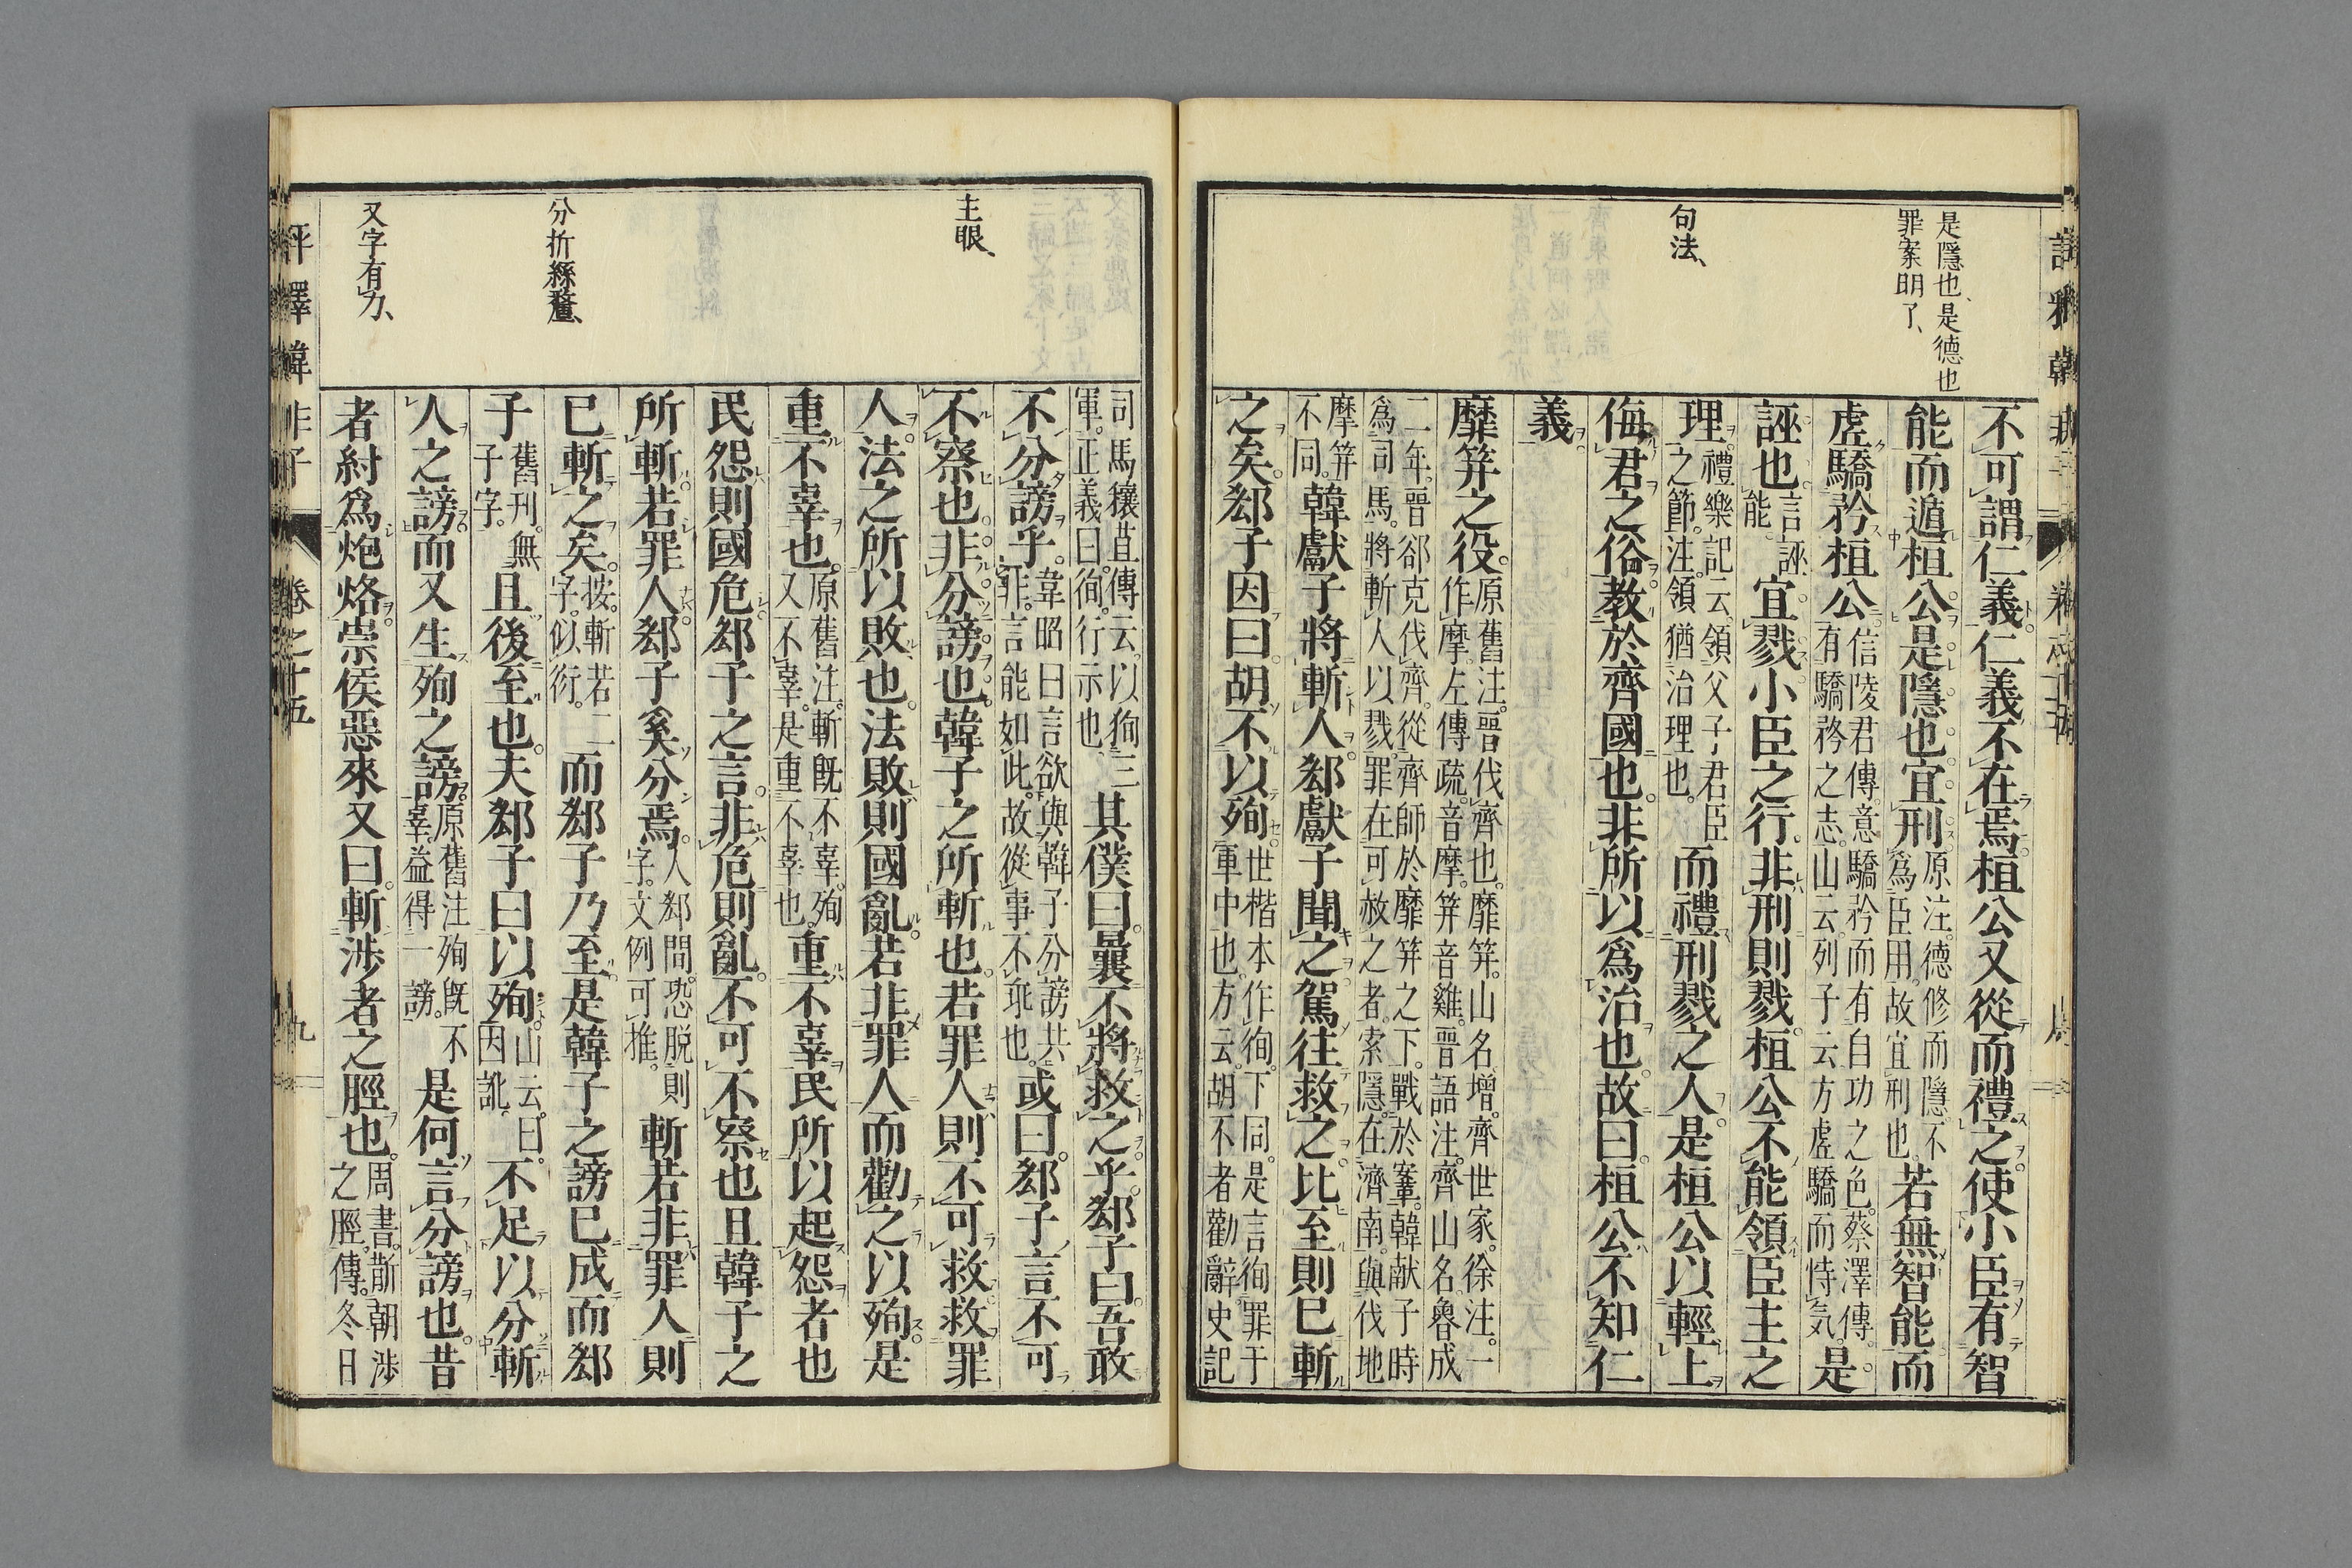 是隱也、是德也
罪案明了、
句法、
不可謂仁義仁義不在焉桓公又從而禮之使小臣有智
能而遁桓公是隱也宜刑原注德修而隱不爲臣用故宜刑也若無智能而
虛驕矜桓公信陵君傳意驕矜而有自功之色蔡澤傳有驕矜之志山云列子云方虛驕而恃気是
誣也言誣能宜戮小臣之行非刑則戮桓公不能領臣主之
理禮樂記云領父子君臣之節注領猶治理也而禮刑戮之人是桓公以輕上
侮君之俗教於齊國也非所以爲治也故曰桓公不知仁
義
靡筓之役原舊注晉伐齊也靡筓山名增齊世家徐注一作摩左傳疏音摩筓音雞晉語注齊山名魯成
二年晉郤克伐齊從齊師於靡筓之下戰於鞌韓献子時爲司馬將斬人以戮罪在可赦之者索隱在濟南與伐地
摩筓不同韓獻子將斬人郄獻子聞之駕往救之比至則已斬
之矣郄子因曰胡不以殉世楷本作徇下同是言徇罪于軍中也方云胡不者勸辭史記
主眼、
分折繇釐、
又字有力、
司馬穰苴傳云以狥三軍正義曰徇行示也其僕曰曩不將救之乎郄子曰吾敢
不分謗乎韋昭曰言欲與韓子分謗共非言能如此故從事不乖也或曰郄子言不可
不察也非分謗也韓子之所斬也若罪人則不可救救罪
人法之所以敗也法敗則國亂若非罪人而勸之以殉是
重不辜也原舊注斬既不辜殉又不辜是重不辜也重不辜民所以起怨者也
民怨則國危郄子之言非危則亂不可不察也且韓子之
所斬若罪人郄子奚分焉人郄間恐脱則字文例可推斬若非罪人則
已斬之矣按斬若二字似衍而郄子乃至是韓子之謗已成而郄
子舊刊無子字且後至也夫郄子曰以殉山云曰因訛不足以分斬
人之謗而又生殉之謗原舊注殉既不辜益得一謗是何言分謗也昔
者紂爲炮烙崇侯惡來又曰斬涉者之脛也周書斮朝涉之脛傳冬日
評釋韓非子
卷之十五
九